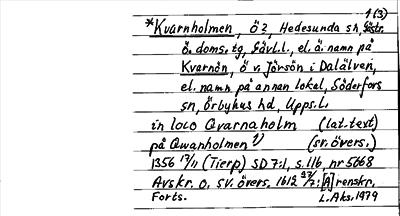 1(3)
*Kvarnholmen, ö 2, Hedesunda sn, Gästr.
ö. doms. tg, Gävl.l., el. ä. namn på
Kvarnön, ö v. Jörsön i Dalälven,
el. namn på annan lokal, Söderfors
sn, Örbyhus hd, Upps.l.
in loco Qvarnaholm (lat. text)
på Qwanholmen 1) (sv. övers.)
1356 17/11 (Tierp) SD 7:1, s. 116, nr 5668
Avskr. o. sv. övers. 1612 27/7: [A] renskr.
Forts. L. Aks. 1979